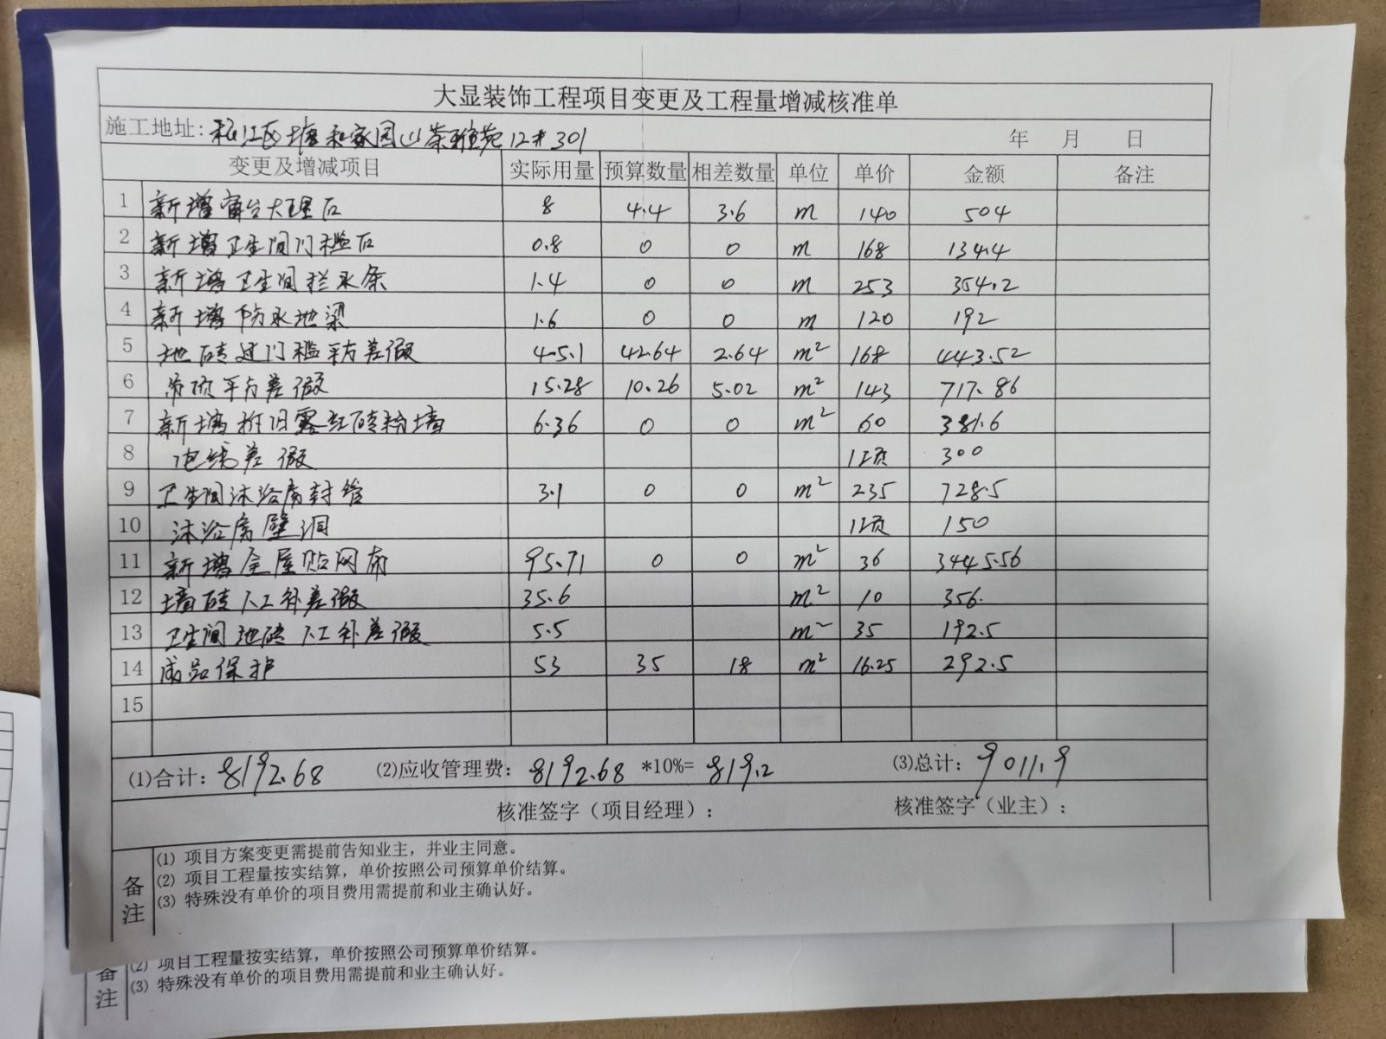 大显装饰工程项目变更及工程量增减核准单
施工地址: 松江区塘和家园山荣雅苑12#301 年 月 日
变更及增减项目 实际用量 预算数量 相差数量 单位 单价 金额 备注
1 新增窗台大理石 8 4.4 3.6 m 140 504
2 新增卫生间门槛石 0.8 0 0 m 168 134.4
3 新增卫生间拦水条 1.4 0 0 m 253 354.2
4 新增防水地梁 1.6 0 0 m 120 192
5 地砖过门槛平方差价 45.1 42.64 2.64 m² 168 443.52
6 吊顶平方差价 15.28 10.26 5.02 m² 143 717.86
7 新增拆旧露红砖粉墙 6.36 0 0 m² 60 381.6
8 电线差价 1项 300
9 卫生间沐浴房封管 3.1 0 0 m² 235 728.5
10 沐浴房壁洞 1项 150
11 新增全屋贴网布 95.71 0 0 m² 36 3445.56
12 墙砖人工补差价 35.6 m² 10 356.
13 卫生间地砖人工补差价 5.5 m² 35 192.5
14 成品保护 53 35 18 m² 16.25 292.5
15
(1)合计: 8192.68 (2)应收管理费: 8192.68 *10%= 819.2 (3)总计: 9011.9
核准签字（项目经理）: 核准签字（业主）:
备注
(1) 项目方案变更需提前告知业主，并业主同意。
(2) 项目工程量按实结算，单价按照公司预算单价结算。
(3) 特殊没有单价的项目费用需提前和业主确认好。
备注
(2) 项目工程量按实结算，单价按照公司预算单价结算。
(3) 特殊没有单价的项目费用需提前和业主确认好。